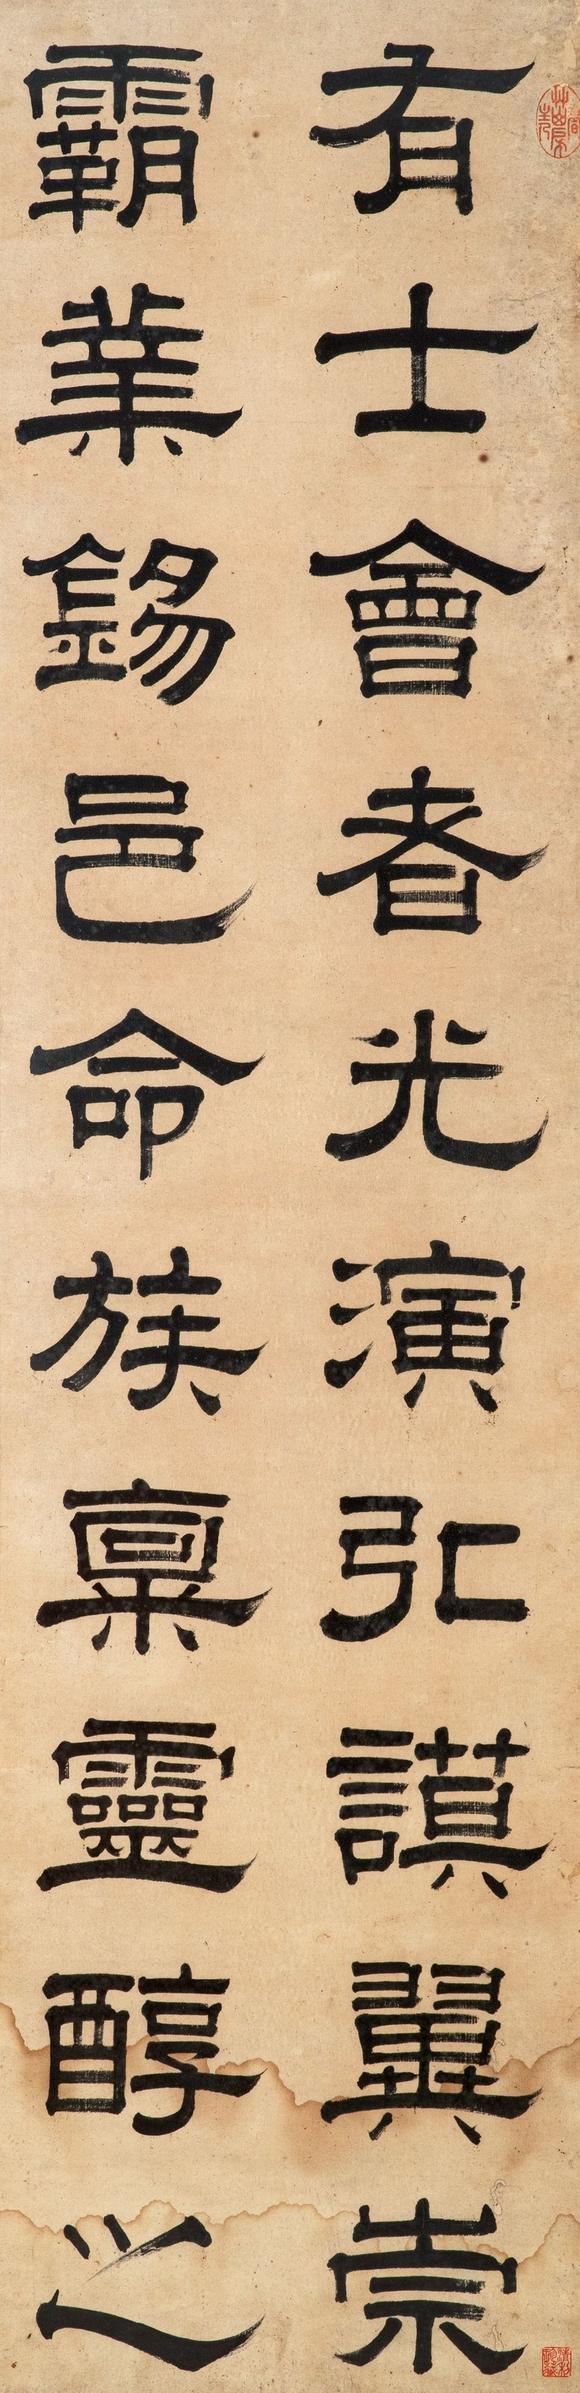 有士會者光演弘謨翼崇
霸業錫邑命族稟靈醇之